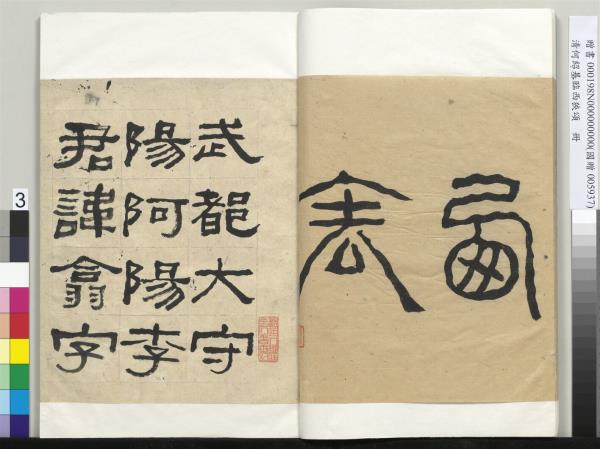 贈書 000198N000000000(國贈 005937)
清何紹基臨西狹頌 冊
西表
武都大守
陽阿陽李
君諱翕字
3